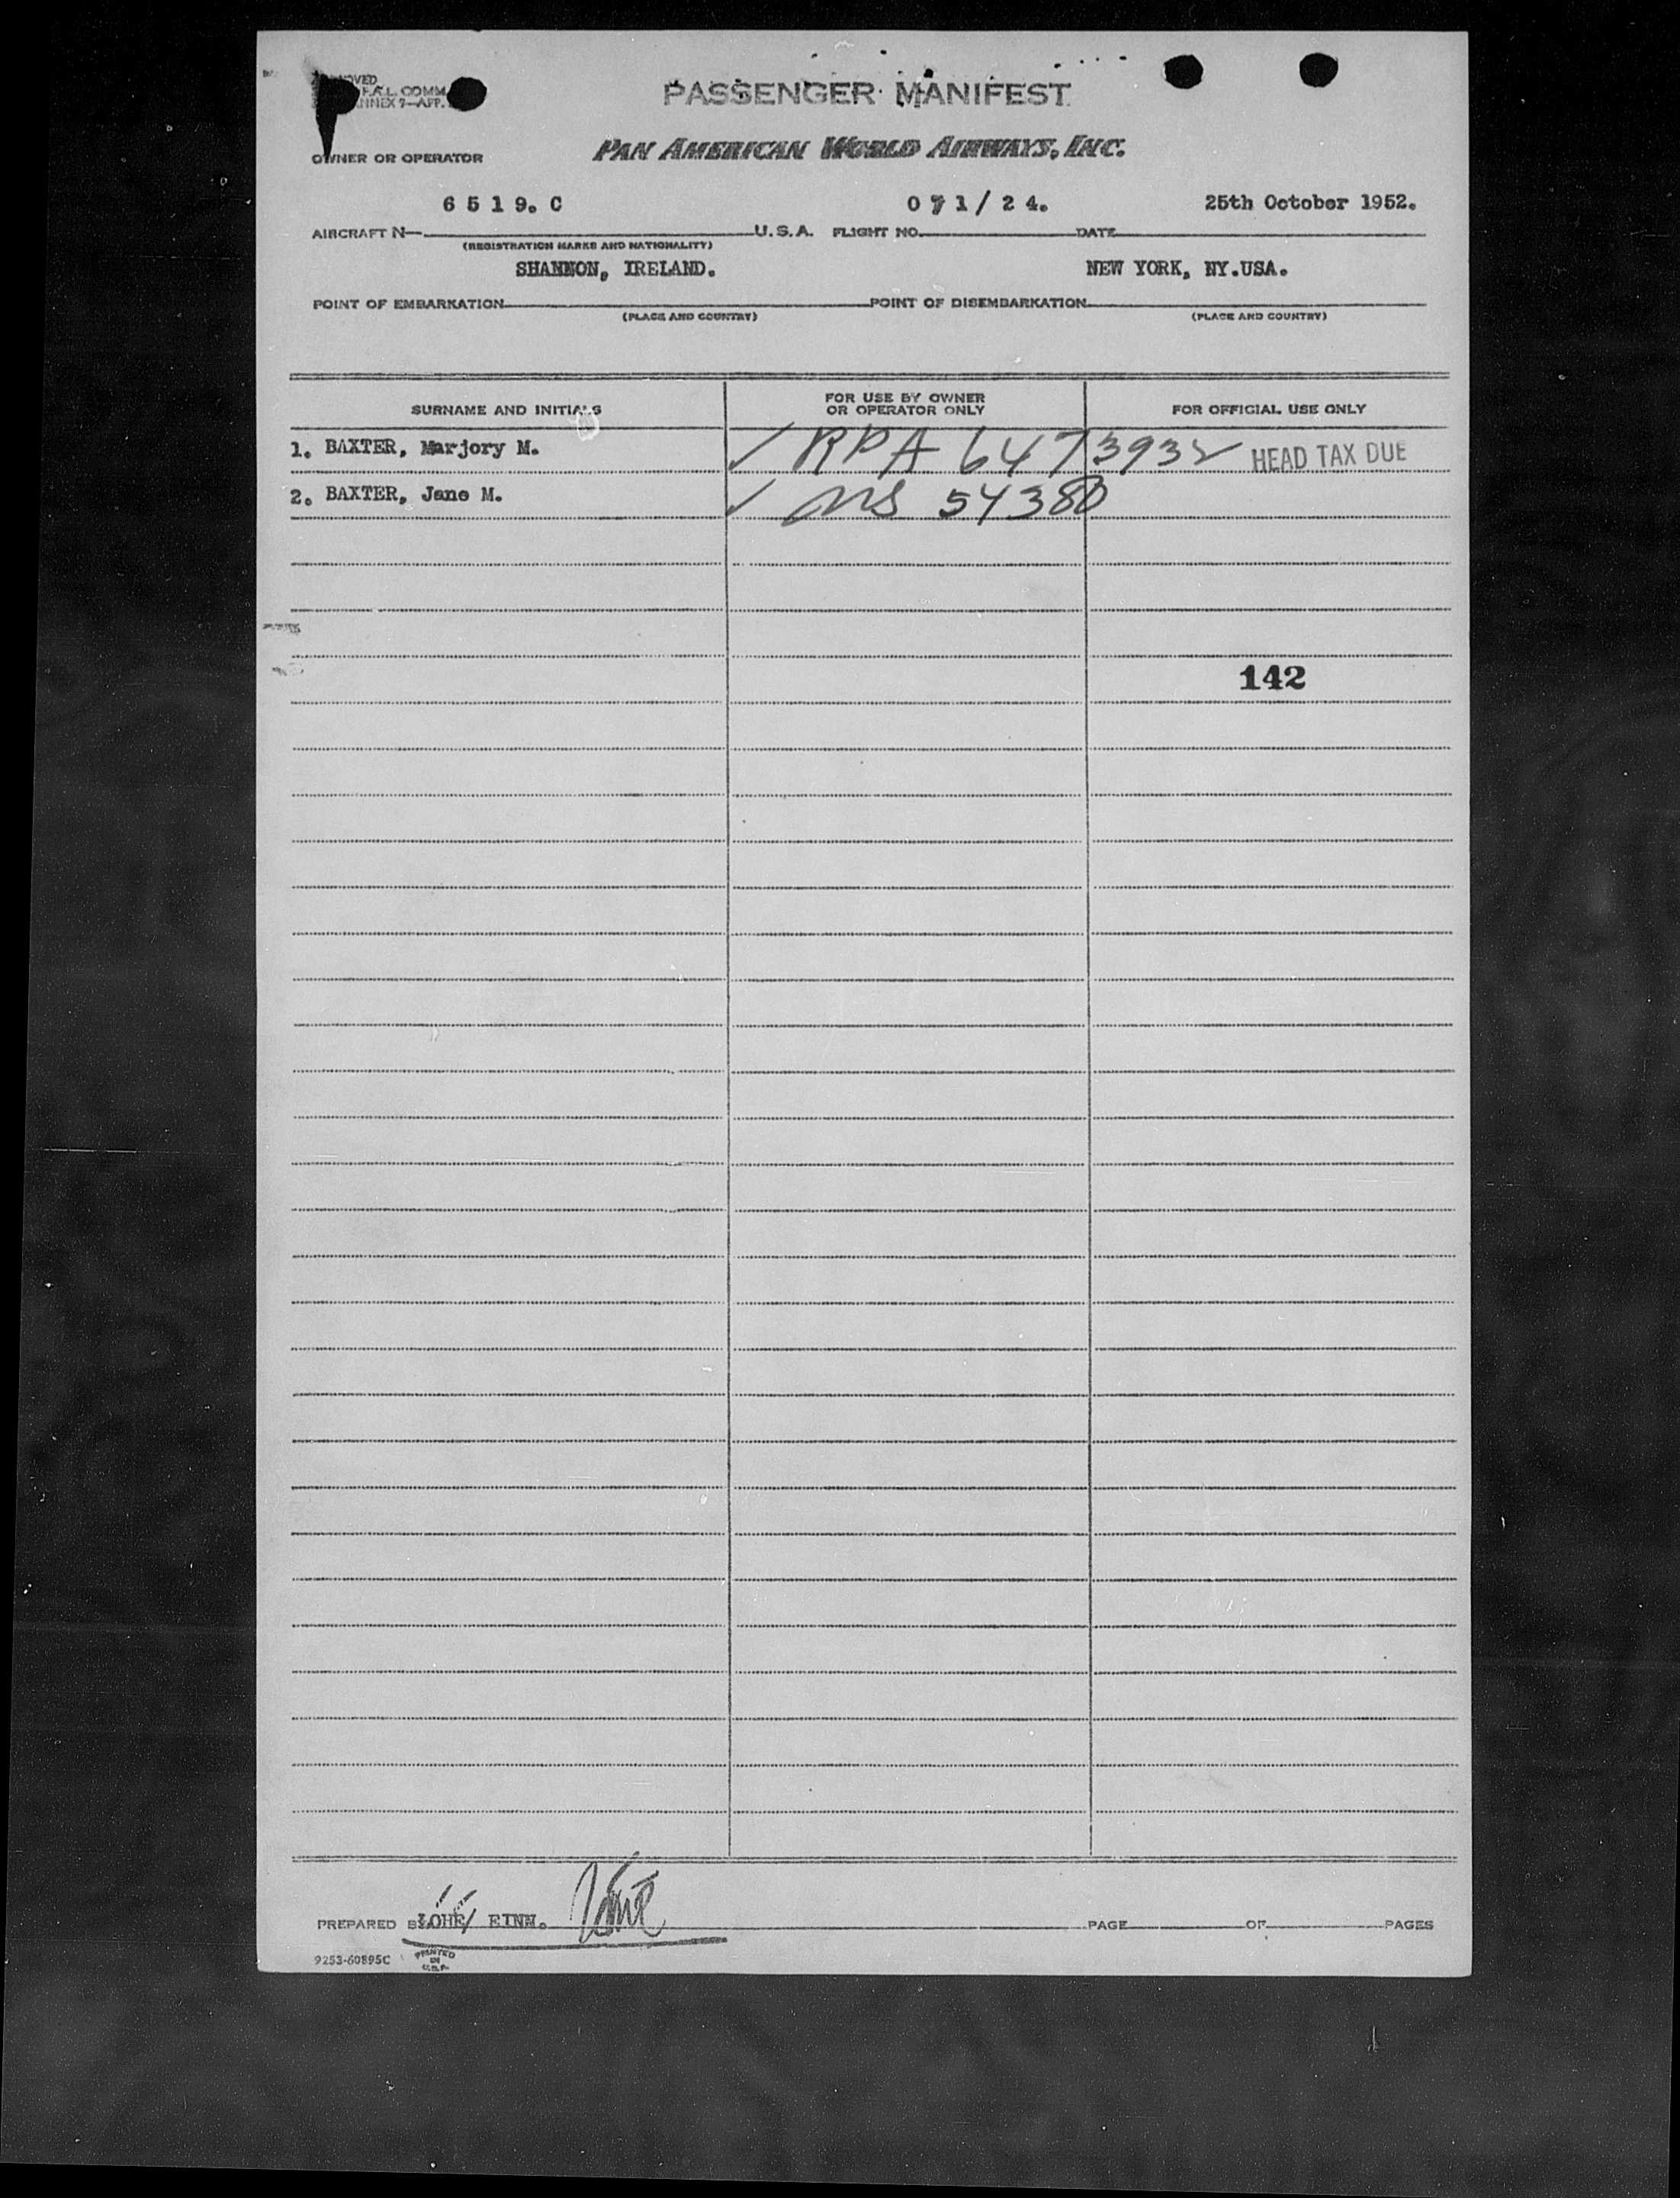 PASSENGER MANIFEST
F.A.L. COMM
ANNEX 9—APP.
OWNER OR OPERATOR PAN AMERICAN WORLD AIRWAYS, INC.
6 5 1 9. C 0 7 1 / 2 4. 25th October 1952.
AIRCRAFT N— U.S.A. FLIGHT NO. DATE
(REGISTRATION MARKS AND NATIONALITY)
SHANNON, IRELAND. NEW YORK, NY.USA.
POINT OF EMBARKATION POINT OF DISEMBARKATION
(PLACE AND COUNTRY) (PLACE AND COUNTRY)
SURNAME AND INITIALS FOR USE BY OWNER OR OPERATOR ONLY FOR OFFICIAL USE ONLY
1. BAXTER, Marjory M. ✓ RPA 6473932 HEAD TAX DUE
2. BAXTER, Jane M. ✓ 54380
142
PREPARED PAGE OF PAGES
9253-60895C PRINTED IN U.S.A.